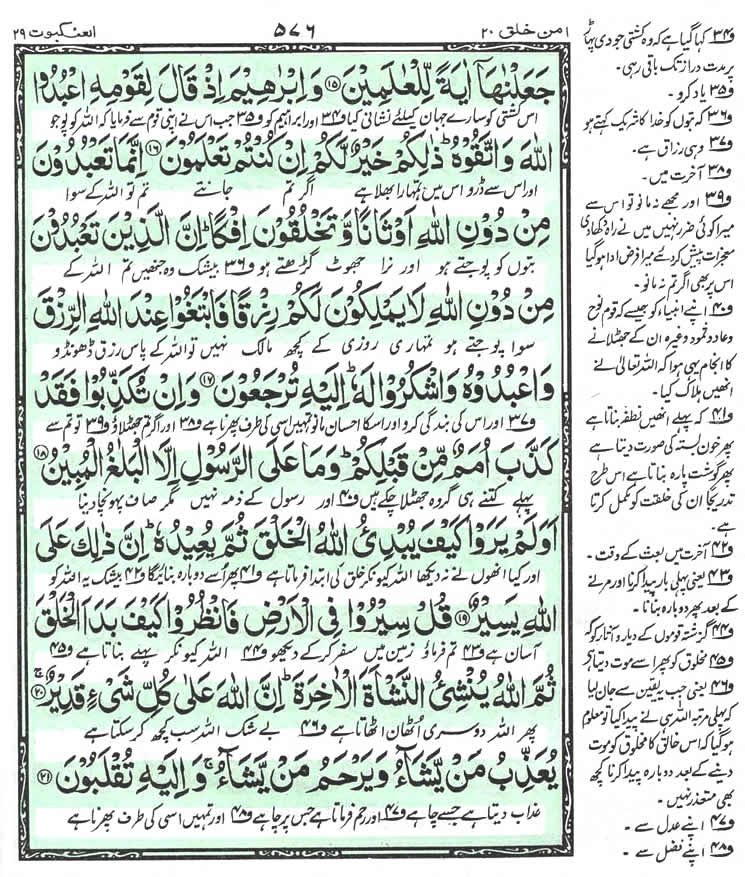 امن خلق ۲۰
۵۷۶
العنكبوت ۲۹
جَعَلْنٰهَاۤ اٰيَةً لِّلْعٰلَمِيْنَ ۝۱۵ وَاِبْرٰهِيْمَ اِذْ قَالَ لِقَوْمِهِ اعْبُدُوا
اس کشتی کو سارے جہان کیلئے نشانی کیا و۳۴ اور ابراہیم کو و۳۵ جب اس نے اپنی قوم سے فرمایا کہ اللہ کو پوجو
اللّٰهَ وَاتَّقُوْهُ ؕ ذٰلِكُمْ خَيْرٌ لَّكُمْ اِنْ كُنْتُمْ تَعْلَمُوْنَ ۝۱۶ اِنَّمَا تَعْبُدُوْنَ
اور اس سے ڈرو اس میں تمہارا بھلا ہے اگر تم جانتے تم تو اللہ کے سوا
مِنْ دُوْنِ اللّٰهِ اَوْثَانًا وَّتَخْلُقُوْنَ اِفْكًا ؕ اِنَّ الَّذِيْنَ تَعْبُدُوْنَ
بتوں کو پوجتے ہو اور نرا جھوٹ گڑھتے ہو و۳۶ بیشک وہ جنھیں تم اللہ کے
مِنْ دُوْنِ اللّٰهِ لَا يَمْلِكُوْنَ لَكُمْ رِزْقًا فَابْتَغُوْا عِنْدَ اللّٰهِ الرِّزْقَ
سوا پوجتے ہو تمہاری روزی کے کچھ مالک نہیں تو اللہ کے پاس رزق ڈھونڈو
وَاعْبُدُوْهُ وَاشْكُرُوْا لَهٗ ؕ اِلَيْهِ تُرْجَعُوْنَ ۝۱۷ وَاِنْ تُكَذِّبُوْا فَقَدْ
و۳۷ اور اس کی بندگی کرو اور اسکا احسان مانو تمہیں اسی کی طرف پھرنا ہے و۳۸ اور اگر تم جھٹلاؤ و۳۹ تو تم سے
كَذَّبَ اُمَمٌ مِّنْ قَبْلِكُمْ ؕ وَمَا عَلَى الرَّسُوْلِ اِلَّا الْبَلٰغُ الْمُبِيْنُ ۝۱۸
پہلے کتنے ہی گروہ جھٹلا چکے ہیں و۴۰ اور رسول کے ذمہ نہیں مگر صاف پہونچا دینا
اَوَلَمْ يَرَوْا كَيْفَ يُبْدِئُ اللّٰهُ الْخَلْقَ ثُمَّ يُعِيْدُهٗ ؕ اِنَّ ذٰلِكَ عَلَى
اور کیا انھوں نے نہ دیکھا اللہ کیونکر خلق کی ابتدا فرماتا ہے و۴۱ پھر اُسے دوبارہ بنائیگا و۴۲ بیشک یہ اللہ کو
اللّٰهِ يَسِيْرٌ ۝۱۹ قُلْ سِيْرُوْا فِى الْاَرْضِ فَانْظُرُوْا كَيْفَ بَدَاَ الْخَلْقَ
آسان ہے و۴۳ تم فرماؤ زمین میں سفر کرکے دیکھو و۴۴ اللہ کیونکر پہلے بناتا ہے و۴۵
ثُمَّ اللّٰهُ يُنْشِئُ النَّشْاَةَ الْاٰخِرَةَ ؕ اِنَّ اللّٰهَ عَلٰى كُلِّ شَىْءٍ قَدِيْرٌ ۝۲۰
پھر اللہ دوسری اُٹھان اٹھاتا ہے و۴۶ بے شک اللہ سب کچھ کرسکتا ہے
يُعَذِّبُ مَنْ يَّشَآءُ وَيَرْحَمُ مَنْ يَّشَآءُ ۚ وَاِلَيْهِ تُقْلَبُوْنَ ۝۲۱
عذاب دیتا ہے جسے چاہے و۴۷ اور رحم فرماتا ہے جس پر چاہے و۴۸ اور تمہیں اسی کی طرف پھرنا ہے
و۳۴ کہا گیا ہے کہ وہ کشتی جودی پہاڑ
پر مدت دراز تک باقی رہی۔
و۳۵ یاد کرو۔
و۳۶ کہ بتوں کو خدا کا شریک کہتے ہو
و۳۷ وہی رزاق ہے۔
و۳۸ آخرت میں۔
و۳۹ اور مجھے نہ مانو تو اس سے
میرا کوئی ضرر نہیں میں نے راہ دکھا دی
معجزات پیش کردئے میرا فرض ادا ہوگیا
اس پر بھی اگر تم نہ مانو۔
و۴۰ اپنے انبیاء کو جیسے کہ قوم نوح
و عاد و ثمود وغیرہ ان کے جھٹلانے
کا انجام یہی ہوا کہ اللہ تعالیٰ نے
انھیں ہلاک کیا۔
و۴۱ کہ پہلے انھیں نطفہ بناتا ہے
پھر خون بستہ کی صورت دیتا ہے
پھر گوشت پارہ بناتا ہے اس طرح
تدریجا ان کی خلقت کو مکمل کرتا
ہے۔
و۴۲ آخرت میں بعث کے وقت۔
و۴۳ یعنی پہلی بار پیدا کرنا اور مرنے
کے بعد پھر دوبارہ بنانا۔
و۴۴ گزشتہ قوموں کے دیار و آثار کو کہ
و۴۵ مخلوق کو پھر اسے موت دیتا ہے
و۴۶ یعنی جب یقین سے جان لیا
کہ پہلی مرتبہ اللہ ہی نے پیدا کیا تو معلوم
ہوگیا کہ اس خالق کا مخلوق کو موت
دینے کے بعد دوبارہ پیدا کرنا کچھ
بھی متعذر نہیں۔
و۴۷ اپنے عدل سے۔
و۴۸ اپنے فضل سے۔